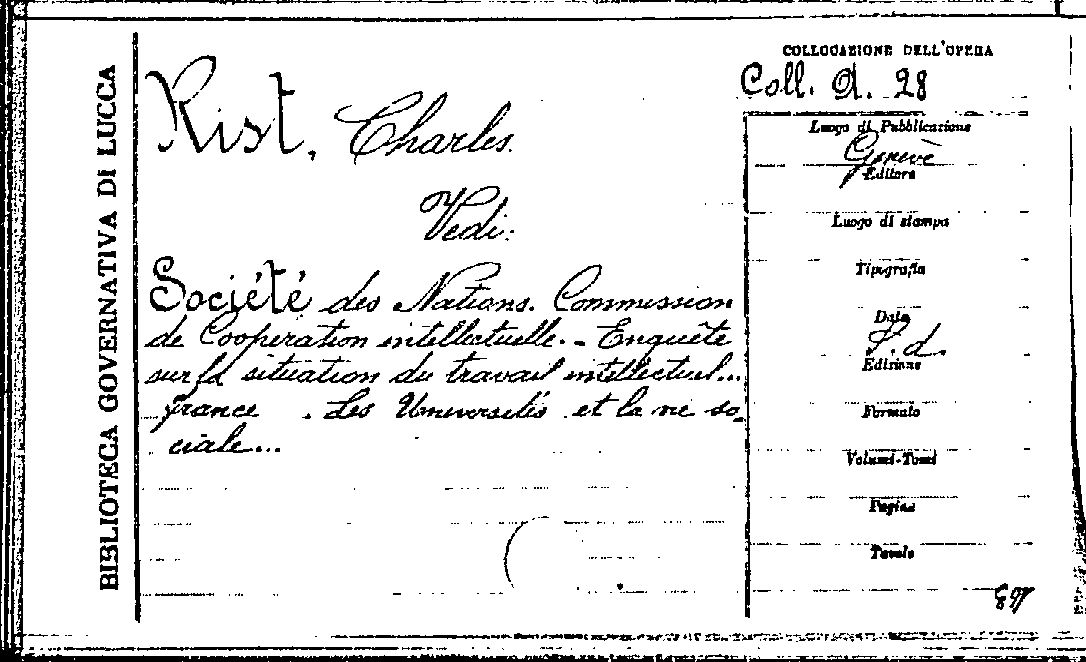 BIBLIOTECA GOVERNATIVA DI LUCCA
Rist, Charles.
Vedi:
Société des Nations. Commission
de Cooperation intellectuelle. - Enquête
sur la situation du travail intellectuel...
France . Les Universités et la vie so-
ciale...
COLLOCAZIONE DELL'OPERA
Coll. A. 28
Luogo di Pubblicazione
Genève
Editore
Luogo di stampa
Tipografia
Data
S.d.
Edizione
Formato
Volumi-Tomi
Pagine
Tavole